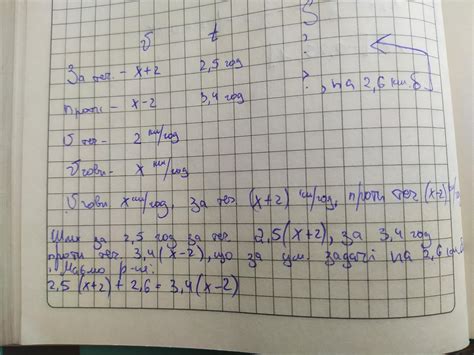 v t S
За теч. - x+2 2,5 год ?
проти - x-2 3,4 год ?, на 2,6 км б.
v теч - 2 км/год
v човн. - x км/год
v човн. x км/год, за теч (x+2) км/год, проти теч (x-2) км/год
Шлях за 2,5 год за теч. 2,5(x+2), за 3,4 год
проти теч. 3,4(x-2), що за ум. задачі на 2,6 км б.
. Маємо р-ня:
2,5(x+2) + 2,6 = 3,4(x-2)